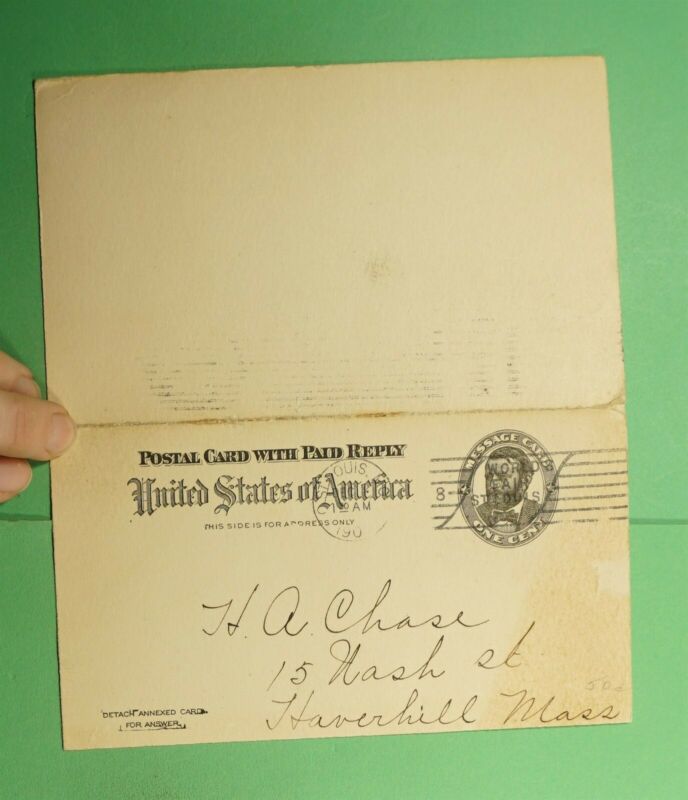 POSTAL CARD WITH PAID REPLY
United States of America
THIS SIDE IS FOR ADDRESS ONLY
LOUIS,
1 30 AM
190
MESSAGE CARD
WORLD
FAIR
ST LOUIS
8-
ONE CENT
H. A. Chase
15 Nash st
Haverhill Mass
50c
DETACH ANNEXED CARD
FOR ANSWER.